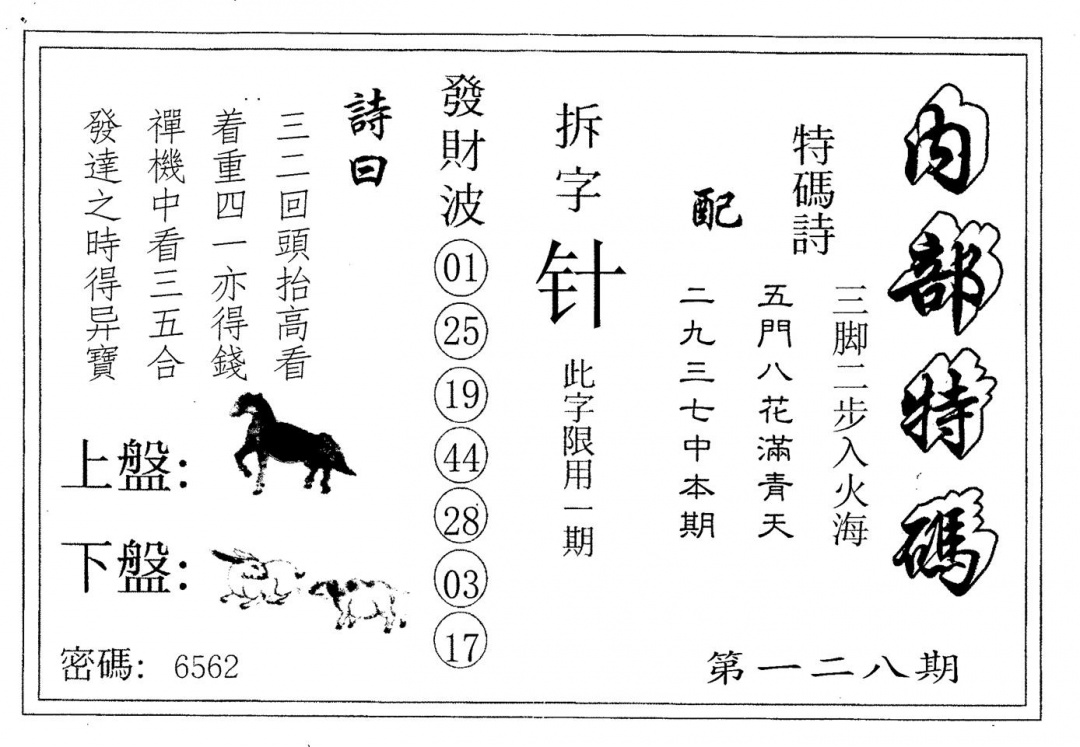 内部特碼
第一二八期
特碼詩
三脚二步入火海
五門八花滿青天
配
二九三七中本期
拆字
针
此字限用一期
發財波
01
25
19
44
28
03
17
詩曰
三二回頭抬高看
着重四一亦得錢
禪機中看三五合
發達之時得异寶
上盤：
下盤：
密碼：6562